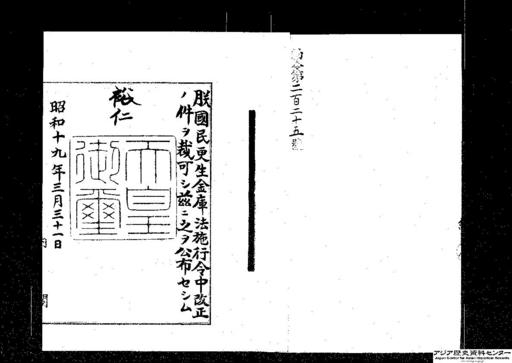 勅令第二百二十五號
朕國民更生金庫法施行令中改正
ノ件ヲ裁可シ茲ニ之ヲ公布セシム
裕仁
天皇御璽
昭和十九年三月三十一日
内閣
アジア歴史資料センター
Japan Center for Asian Historical Records